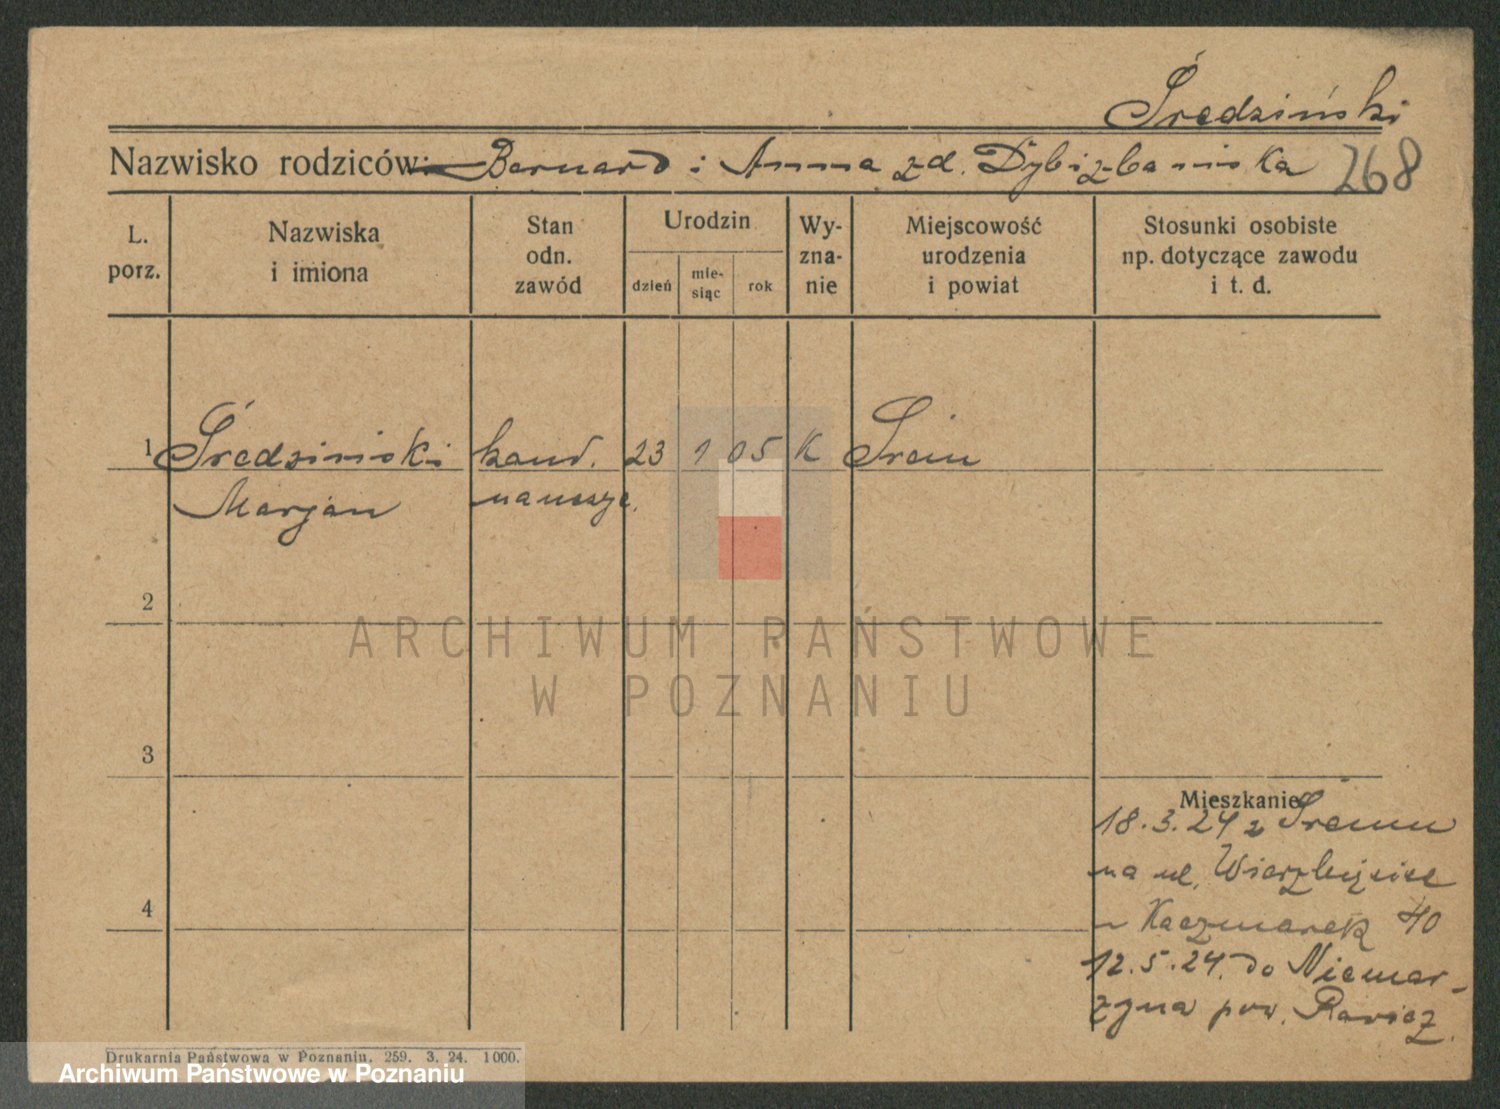 Średziński
Nazwisko rodziców: Bernard i Anna zd. Dybizbańska 268
L. porz.
Nazwiska i imiona
Stan odn. zawód
Urodzin
dzień
mie-siąc
rok
Wy-zna-nie
Miejscowość urodzenia i powiat
Stosunki osobiste np. dotyczące zawodu i t. d.
1 Średziński kand. 23 1 05 K Śrem
Marjan nauczyc.
2
ARCHIWUM PAŃSTWOWE
W POZNANIU
3
Mieszkanie
18.3.24 z Śremu
na ul. Wierzbięcice
u Kaczmarek 40
12.5.24. do Niemar-
zyna pow. Rawicz.
4
Drukarnia Państwowa w Poznaniu. 259. 3. 24. 1000.
Archiwum Państwowe w Poznaniu